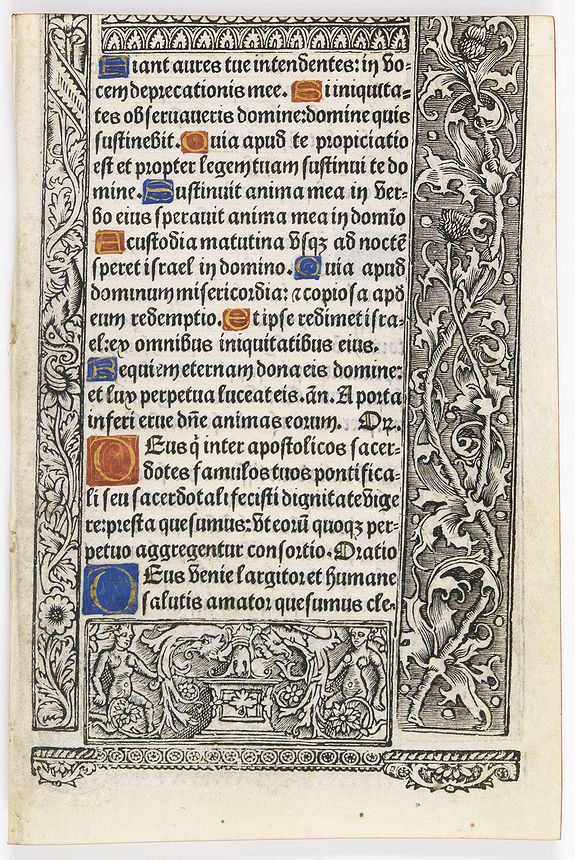 Fiant aures tue intendentes: in vo-
cem deprecationis mee. Si iniquita-
tes observaveris domine: domine quis
sustinebit. Quia apud te propiciatio
est et propter legem tuam sustinui te do
mine. Sustinuit anima mea in ver-
bo eius speravit anima mea in domīo
A custodia matutina vsqꝫ ad noctē
speret israel in domino. Quia apud
dominum misericordia: ⁊ copiosa apd
eum redemptio. Et ipse redimet isra-
el: ex omnibus iniquitatibus eius.
Requiem eternam dona eis domine:
et lux perpetua luceat eis. añ. A porta
inferi erue dñe animas eorum. Oꝛ.
DEus q̇ inter apostolicos sacer-
dotes famulos tuos pontifica-
li seu sacerdotali fecisti dignitate vige
re: presta quesumus: vt eorū quoqꝫ per-
petuo aggregentur consortio. Oratio
DEus venie largitor et humane
salutis amator quesumus cle-